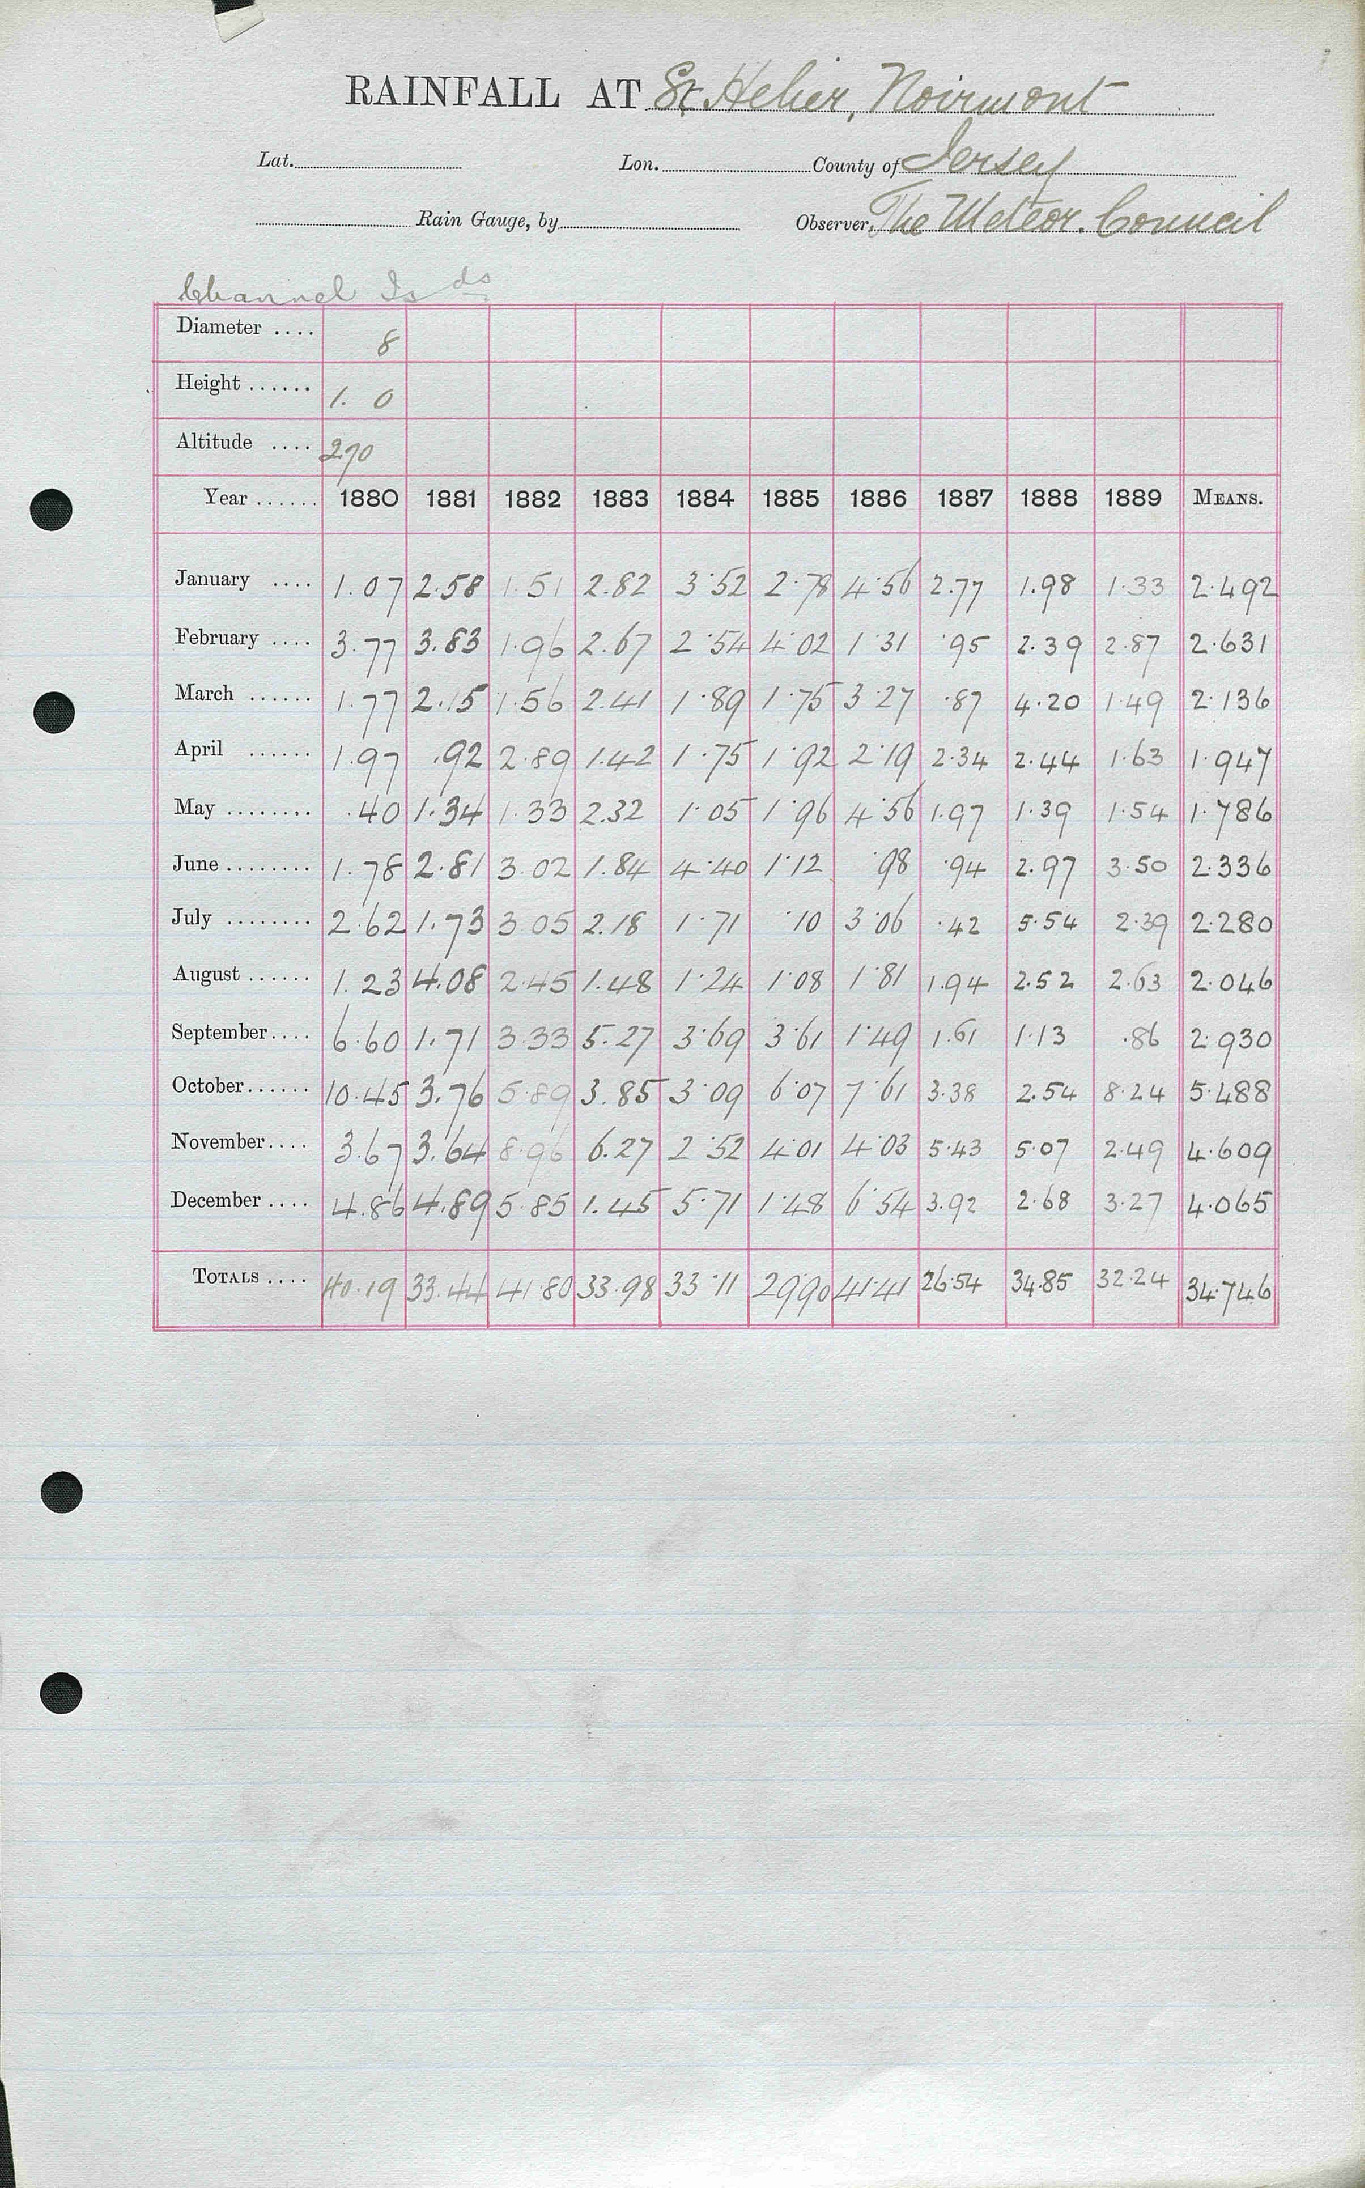 RAINFALL AT St. Helier, Noirmont
Lat. Lon. County of Jersey
Rain Gauge, by Observer, The Meteor. Council
Channel Is ds
Diameter .... 8
Height ...... 1. 0
Altitude .... 270
Year ...... 1880 1881 1882 1883 1884 1885 1886 1887 1888 1889 MEANS.
January .... 1.07 2.58 1.51 2.82 3.52 2.78 4.56 2.77 1.98 1.33 2.492
February .... 3.77 3.83 1.96 2.67 2.54 4.02 1.31 .95 2.39 2.87 2.631
March ...... 1.77 2.15 1.56 2.41 1.89 1.75 3.27 .87 4.20 1.49 2.136
April ...... 1.97 .92 2.89 1.42 1.75 1.92 2.19 2.34 2.44 1.63 1.947
May ........ .40 1.34 1.33 2.32 1.05 1.96 4.56 1.97 1.39 1.54 1.786
June ........ 1.78 2.81 3.02 1.84 4.40 1.12 .98 .94 2.97 3.50 2.336
July ........ 2.62 1.73 3.05 2.18 1.71 .10 3.06 .42 5.54 2.39 2.280
August ...... 1.23 4.08 2.45 1.48 1.24 1.08 1.81 1.94 2.52 2.63 2.046
September .... 6.60 1.71 3.33 5.27 3.69 3.61 1.49 1.61 1.13 .86 2.930
October ...... 10.45 3.76 5.89 3.85 3.09 6.07 7.61 3.38 2.54 8.24 5.488
November .... 3.67 3.64 8.96 6.27 2.52 4.01 4.03 5.43 5.07 2.49 4.609
December .... 4.86 4.89 5.85 1.45 5.71 1.48 6.54 3.92 2.68 3.27 4.065
TOTALS .... 40.19 33.44 41.80 33.98 33.11 29.90 41.41 26.54 34.85 32.24 34.746